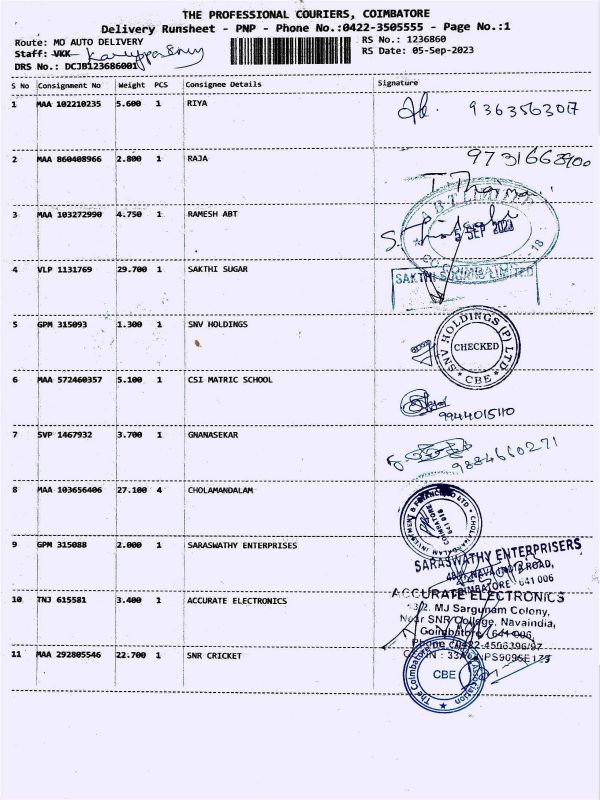 THE PROFESSIONAL COURIERS, COIMBATORE
Delivery Runsheet - PNP - Phone No.:0422-3505555 - Page No.:1
Route: MO AUTO DELIVERY
RS No.: 1236860
Staff: VKK
RS Date: 05-Sep-2023
DRS No.: DCJB123686001
S No Consignment No Weight PCS Consignee Details Signature
1 MAA 102210235 5.600 1 RIYA 9363563017
2 MAA 860408966 2.800 1 RAJA 9731663900
3 MAA 103272990 4.750 1 RAMESH ABT
A B T LIMITED
5 SEP 2023
COIMBATORE - 18
4 VLP 1131769 29.700 1 SAKTHI SUGAR
SAKTHI SUGARS LIMITED
5 GPM 315093 1.300 1 SNV HOLDINGS
SNV HOLDINGS (P) LTD
CHECKED
* CBE *
6 MAA 572460357 5.100 1 CSI MATRIC SCHOOL
9944015110
7 SVP 1467932 3.700 1 GNANASEKAR
9884660271
8 MAA 103656406 27.100 4 CHOLAMANDALAM
COIMBATORE
641 018
9 GPM 315088 2.000 1 SARASWATHY ENTERPRISES
SARASWATHY ENTERPRISERS
COIMBATORE - 641 006
10 TNJ 615581 3.400 1 ACCURATE ELECTRONICS
ACCURATE ELECTRONICS
MJ Sargunam Colony,
Near SNR College, Navaindia,
Coimbatore (641 006
Phone : 0422-4506396/97
11 MAA 292805546 22.700 1 SNR CRICKET
The Coimbatore
Association
CBE